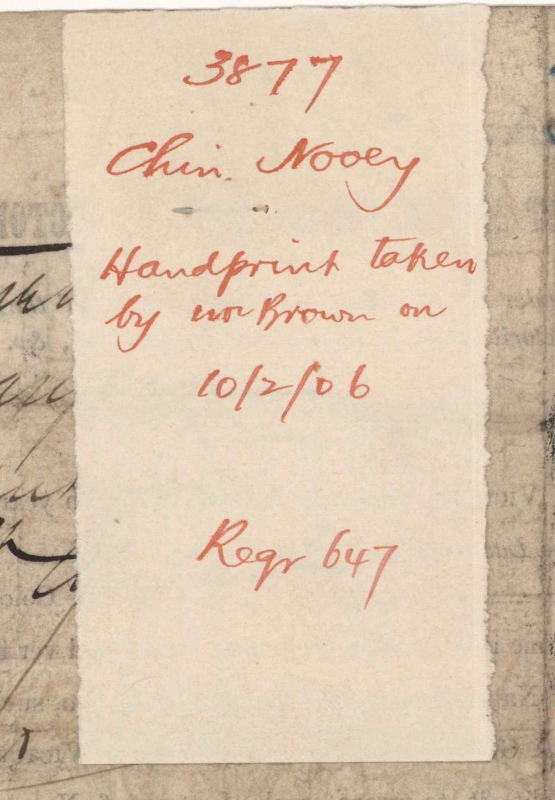 3877
Chin. Nooey
Handprint taken
by Mr Brown on
10/2/06
Regr 647